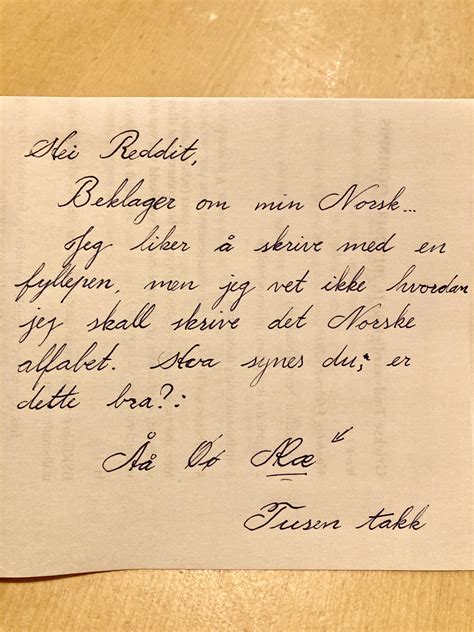 Hei Reddit,
Beklager om min Norsk...
Jeg liker å skrive med en
fyllepen, men jeg vet ikke hvordan
jeg skall skrive det Norske
alfabet. Hva synes du; er
dette bra?:
Åå Øø Ææ
Tusen takk